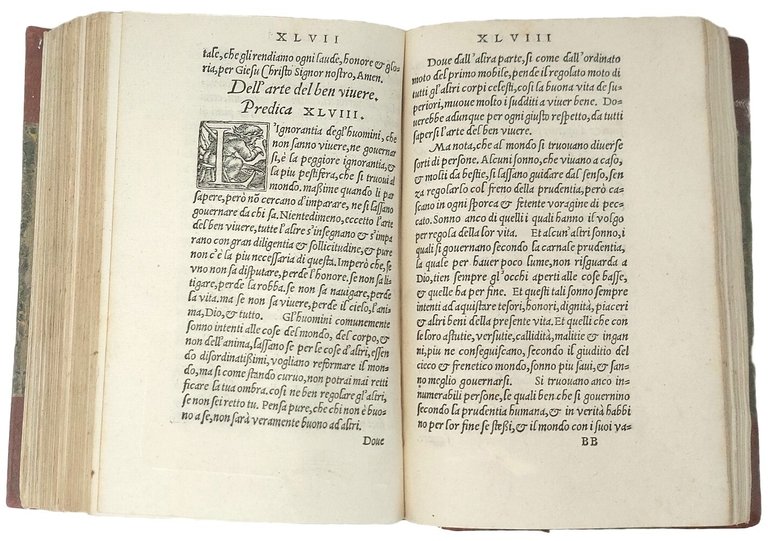 XLVII
tale, che gli rendiano ogni laude, honore & glo-
ria, per Giesu Christo Signor nostro, Amen.
Dell'arte del ben viuere.
Predica XLVIII.
L'Ignorantia degl'huomini, che
non sanno viuere, ne gouernar
si, è la peggiore ignorantia, &
la piu pestifera, che si truoui al
mondo. maßime quando li par
sapere, però nō cercano d'imparare, ne si lassano
gouernare da chi sa. Nientedimeno, eccetto l'arte
del ben viuere, tutte l'altre s'insegnano & s'impa
rano con gran diligentia & sollicitudine, & pure
non c'è la piu necessaria di questa. Imperò che, se
vno non sa disputare, perde l'honore. se non sa li-
tigare, perde la robba. se non sa nauigare, perde
la vita. ma se non sa viuere, perde il cielo, l'ani
ma, Dio, & tutto. Gl'huomini comunemente
sonno intenti alle cose del mondo, del corpo, &
non dell'anima, lassano se per le cose d'altri, essen
do disordinatißimi, vogliano reformare il mon-
do, ma si come stando curuo, non potrai mai retti
ficare la tua ombra. cosi ne ben regolare gl'altri,
se non sei retto tu. Pensa pure, che chi non è buo-
no a se, non sarà veramente buono ad altri.
Doue
XLVIII
Doue dall'altra parte, si come dall'ordinato
moto del primo mobile, pende il regolato moto di
tutti gl'altri corpi celesti, cosi la buona vita de su-
periori, muoue molto i sudditi a viuer bene. Do-
uerebbe adunque per ogni giusto respetto, da tutti
sapersi l'arte del ben viuere.
Ma nota, che al mondo si truouano diuerse
sorti di persone. Alcuni sonno, che viuano a caso,
& molti da bestie, si lassano guidare dal senso, sen-
za regolarlo col freno della prudentia, però ca-
scano in ogni sporca & fetente voragine di pec-
cato. Sonno anco di quelli i quali hanno il volgo
per regola della lor vita. Et alcun'altri sonno, i
quali si gouernano secondo la carnale prudentia,
la quale per hauer poco lume, non risguarda a
Dio, tien sempre gl'occhi aperti alle cose basse,
& quelle ha per fine. Et questi tali sonno sempre
intenti ad aquistare tesori, honori, dignità, piaceri
& altri beni della presente vita. Et quelli che con
le loro astutie, versutie, callidità, malitie & ingan
ni, piu ne conseguiscano, secondo il giuditio del
cieco & frenetico mondo, sonno piu saui, & san-
no meglio gouernarsi. Si truouano anco in-
numerabili persone, le quali ben che si gouernino
secondo la prudentia humana, & in verità habbi
no per lor fine se steßi, & il mondo con i suoi va-
BB